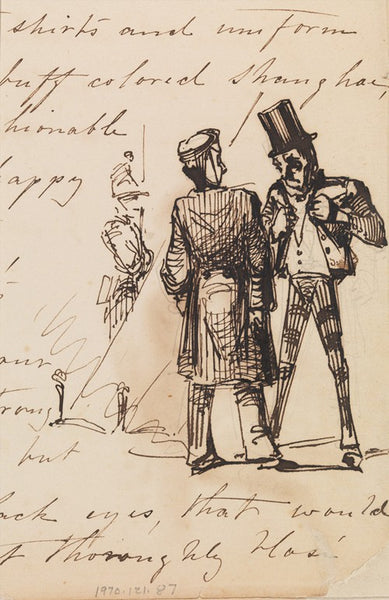 shirts and uniform
buff colored Shanghae,
hionable
happy
our
trong
but
ack eyes, that would
t thoroughly blas
1970.121.87